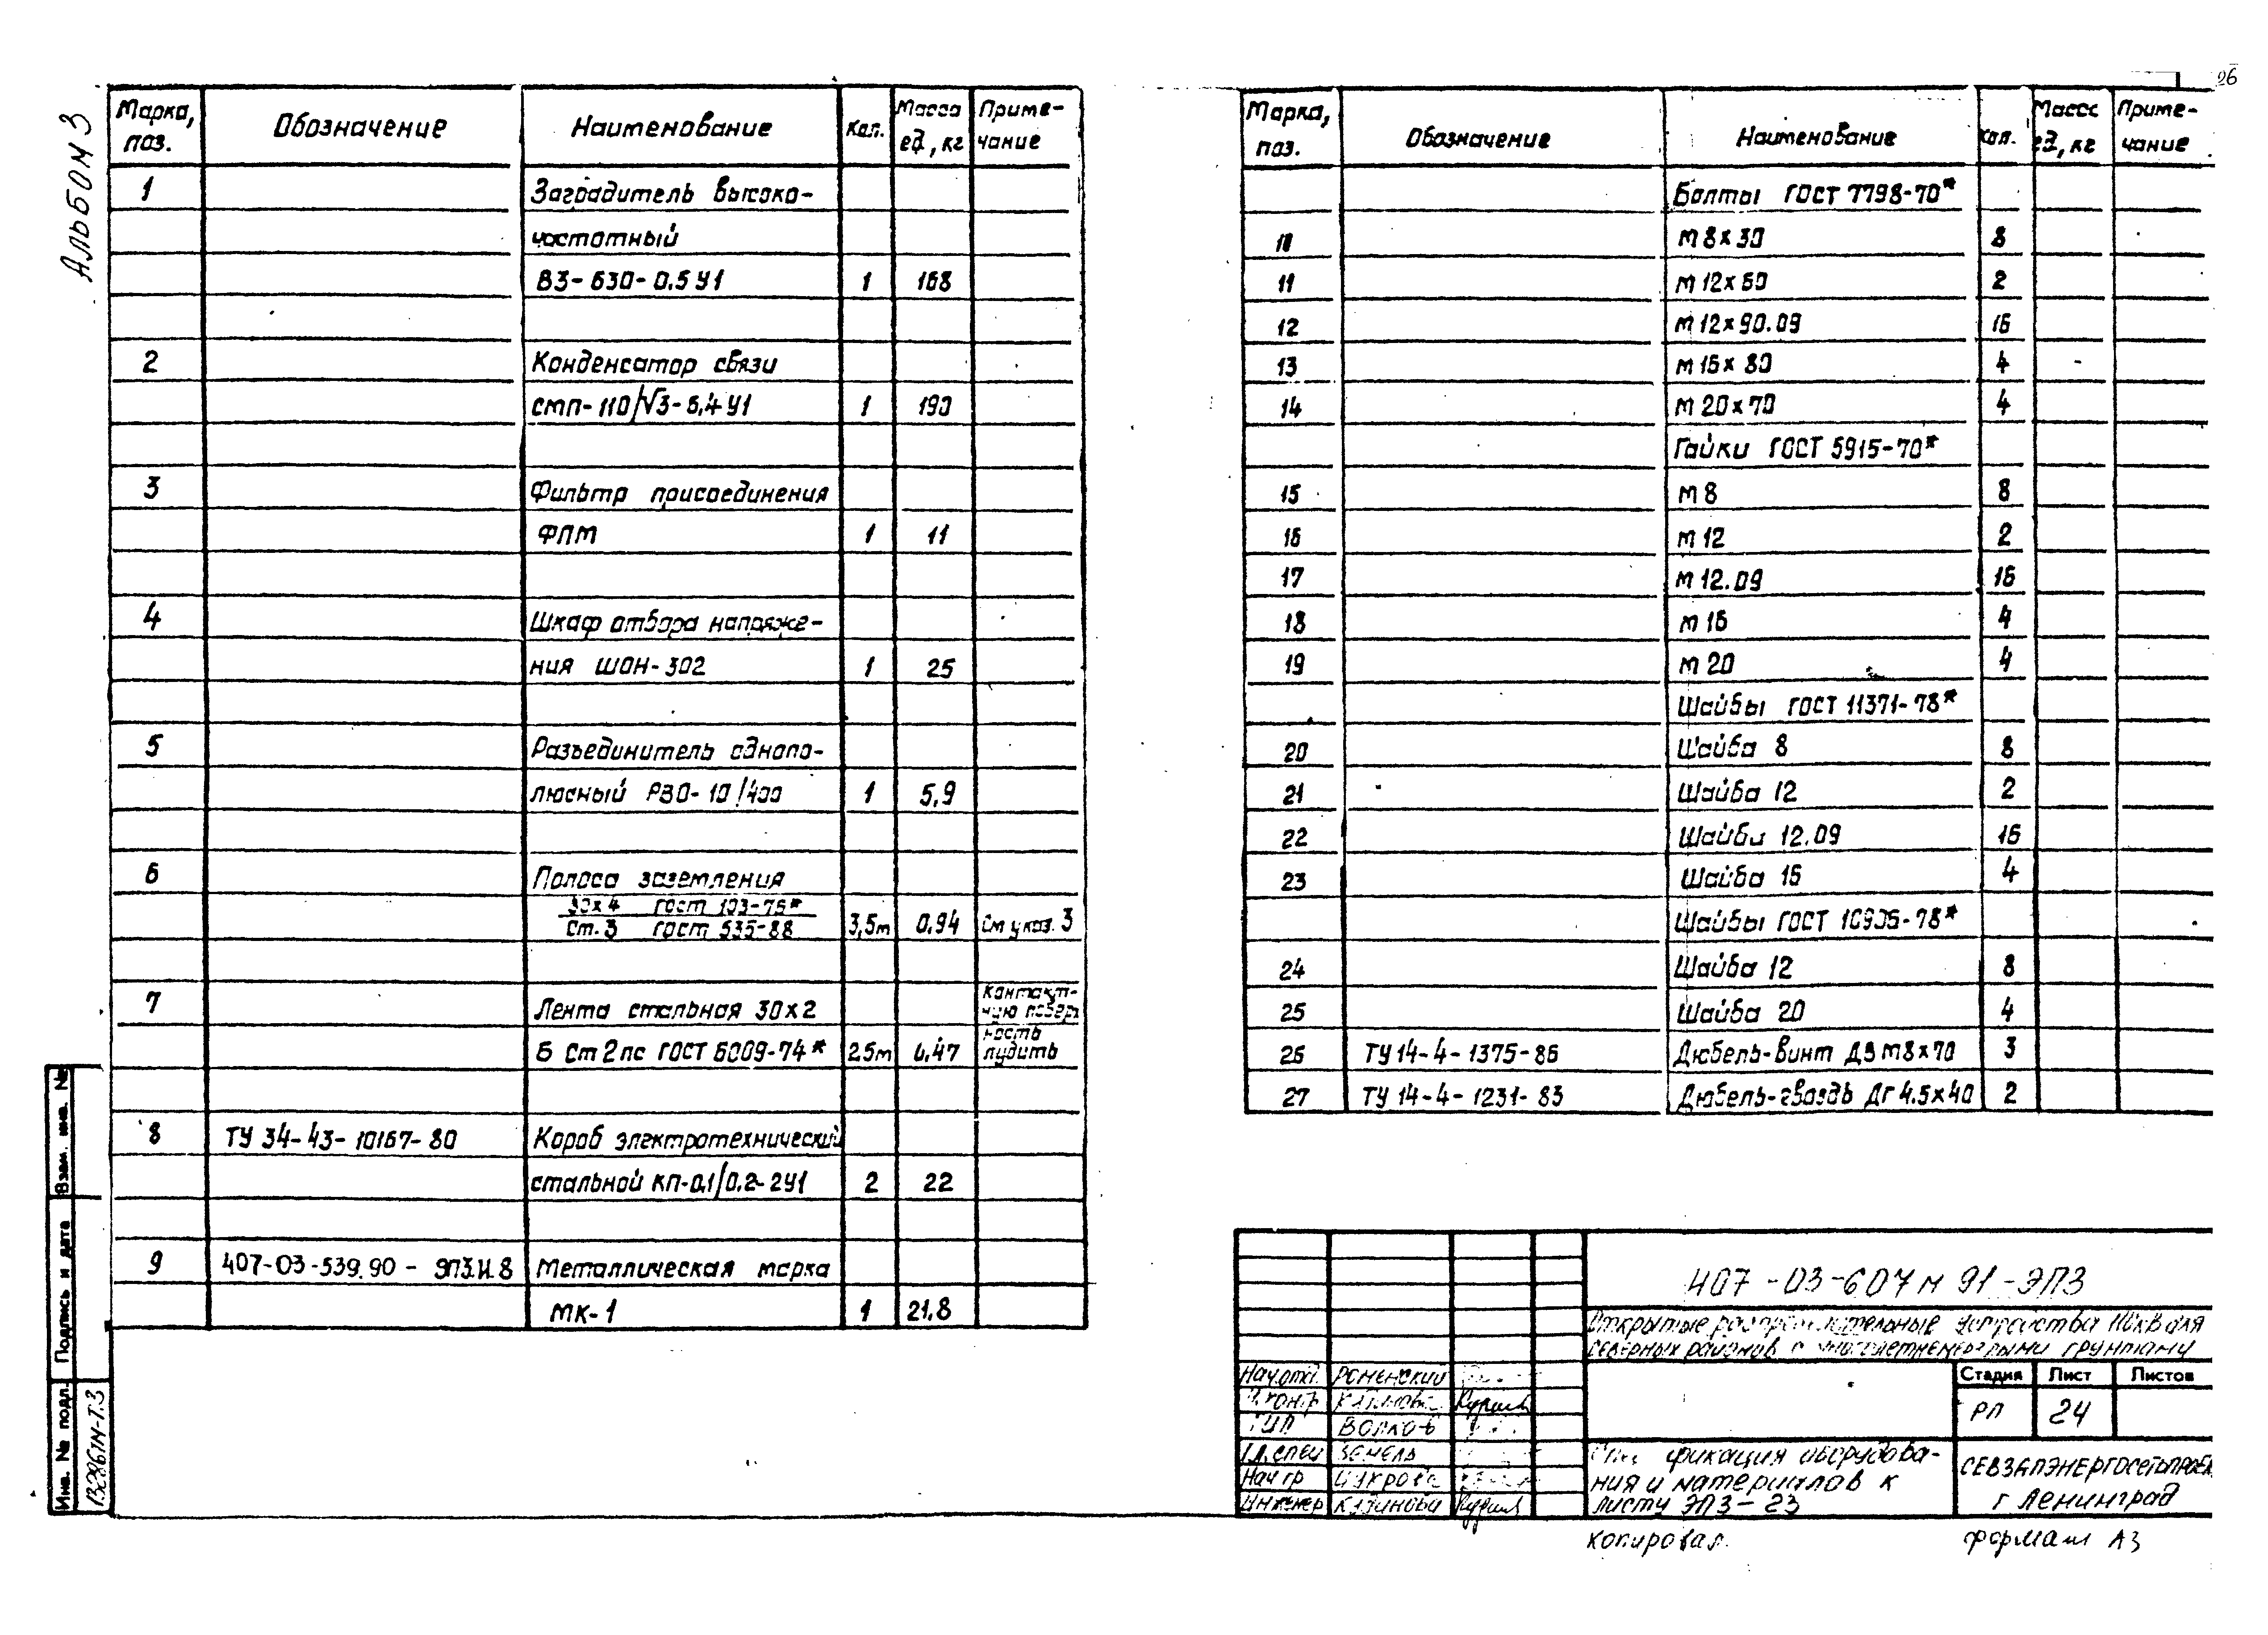 26
Альбом 3
Марка, поз. Обозначение Наименование Кол. Масса ед, кг Приме-чание
1 Заградитель высоко-
частотный
ВЗ-630-0.5У1 1 168
2 Конденсатор связи
СМП-110/√3-6,4У1 1 190
3 Фильтр присоединения
ФПМ 1 11
4 Шкаф отбора напряже-
ния ШОН-302 1 25
5 Разъединитель однопо-
люсный РВО-10/400 1 5,9
6 Полоса заземления
30х4 ГОСТ 103-76*
Ст.3 ГОСТ 535-88 3,5м 0,94 См указ. 3
7 Лента стальная 30х2 Контакт-
ную поверх
ность
Б Ст2пс ГОСТ 6009-74* 25м 0,47 лудить
8 ТУ 34-43-10167-80 Короб электротехнический
стальной КП-0,1/0,2-2У1 2 22
9 407-03-539.90 - ЭП3.И.8 Металлическая марка
МК-1 1 21,8
Марка, поз. Обозначение Наименование Кол. Масса ед, кг Приме-чание
Болты ГОСТ 7798-70*
10 М8х30 8
11 М12х60 2
12 М12х90.09 16
13 М16х80 4
14 М20х70 4
Гайки ГОСТ 5915-70*
15 М8 8
16 М12 2
17 М12.09 16
18 М16 4
19 М20 4
Шайбы ГОСТ 11371-78*
20 Шайба 8 8
21 Шайба 12 2
22 Шайба 12.09 16
23 Шайба 16 4
Шайбы ГОСТ 10906-78*
24 Шайба 12 8
25 Шайба 20 4
26 ТУ 14-4-1375-86 Дюбель-винт ДВ М8х70 3
27 ТУ 14-4-1231-83 Дюбель-гвоздь ДГ 4.5х40 2
407-03-607м 91-ЭП3
Открытые распределительные устройства 110кВ для
северных районов с многолетнемерзлыми грунтами
Стадия Лист Листов
РП 24
Нач.отд. Роменский
Н.контр
ГИП Волков
Гл.спец Земель
Нач гр
Инженер
фикация оборудова-
ния и материалов к
листу ЭП3-23
СЕВЗАПЭНЕРГОСЕТЬПРОЕКТ
г Ленинград
Копировал.
формат А3
Взам. инв. №
Подпись и дата
Инв. № подл.
13286тм-Т.3